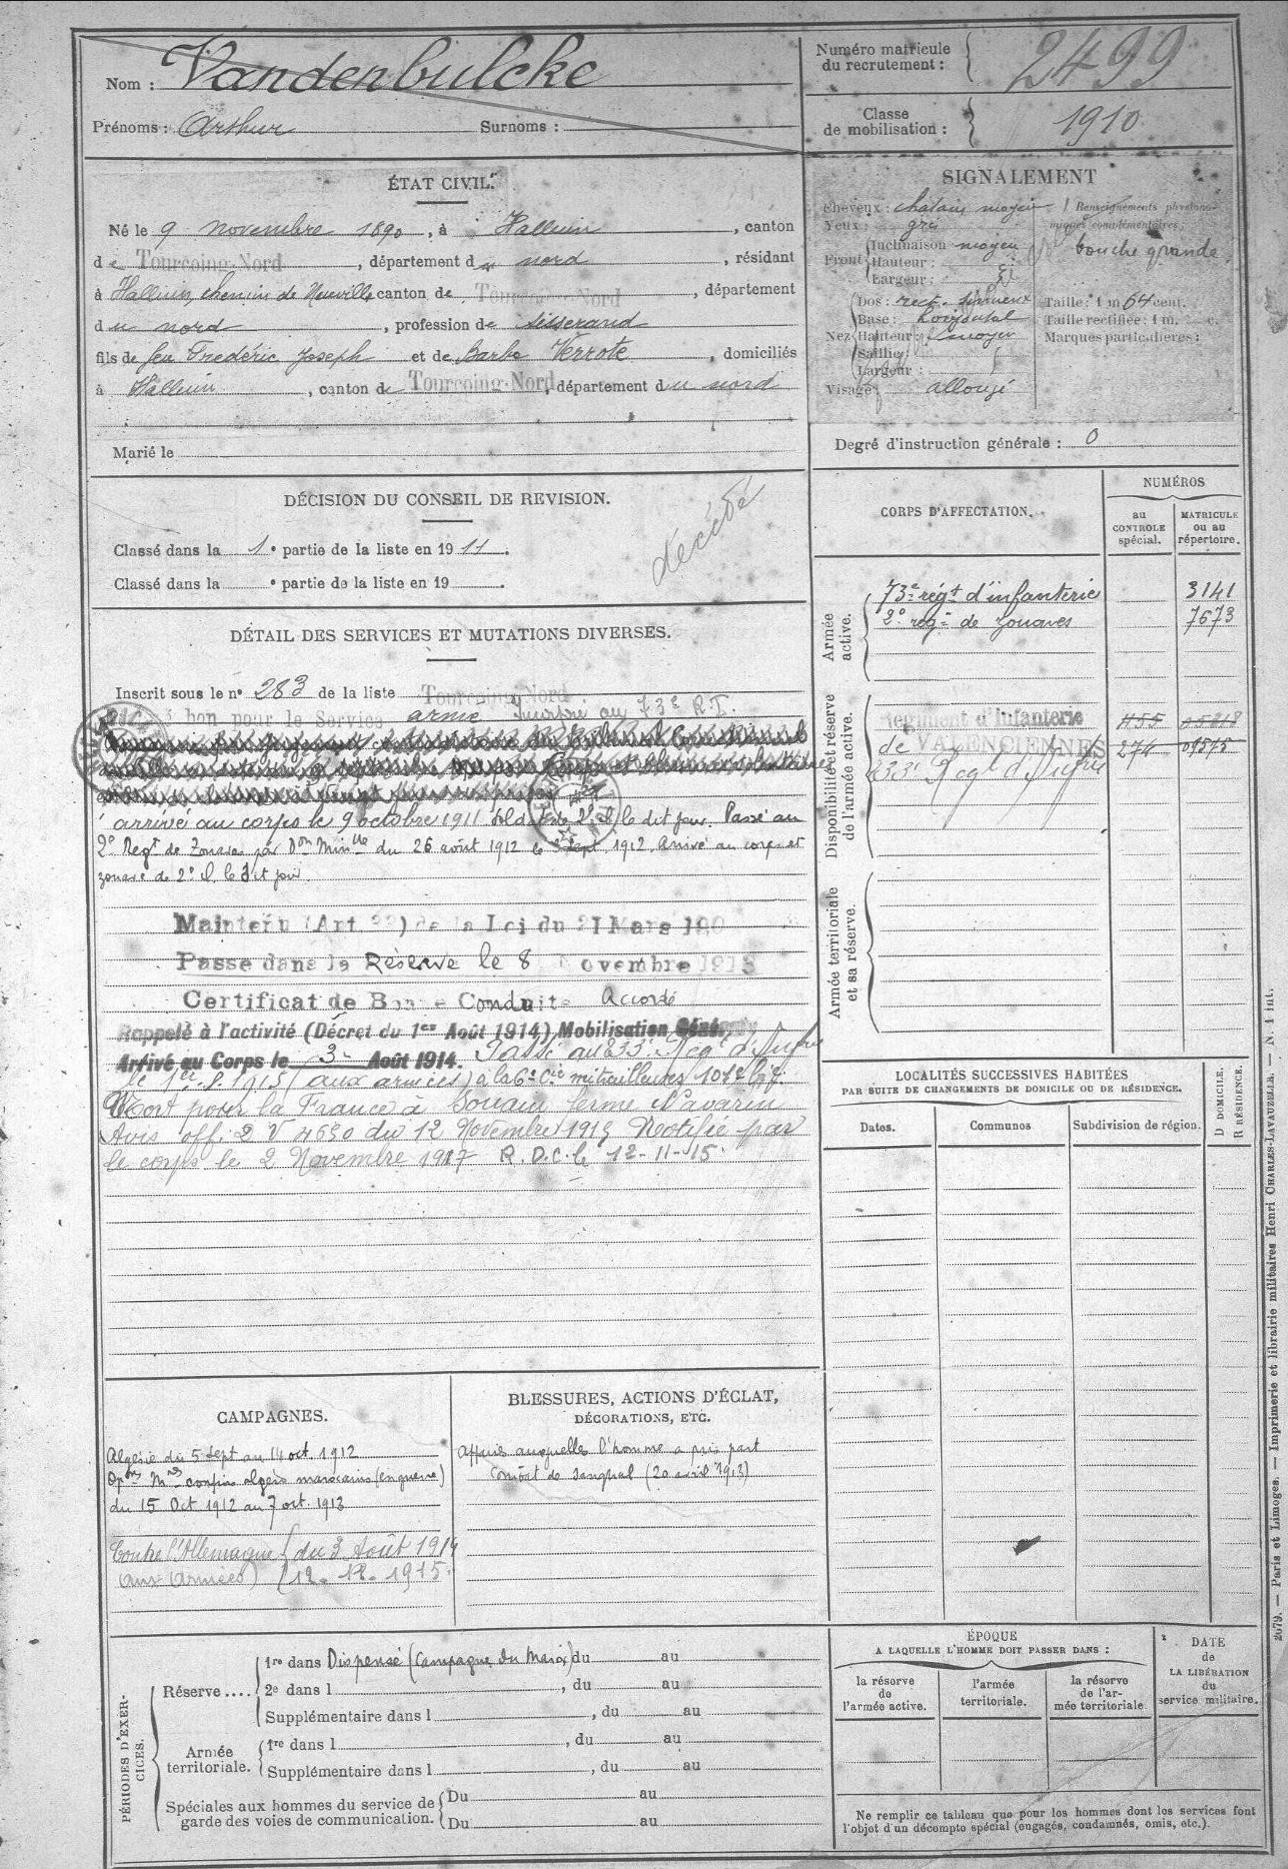 Nom : Vandenbulcke
Prénoms : Arthur Surnoms :
Numéro matricule du recrutement : 2499
Classe de mobilisation : 1910
ÉTAT CIVIL.
Né le 9 novembre 1890, à Halluin, canton
de Tourcoing-Nord, département du nord, résidant
à Halluin, chemin de Neuville canton de Tourcoing-Nord, département
du nord, profession de tisserand
fils de feu Frédéric Joseph et de Barbe Verrote, domiciliés
à Halluin, canton de Tourcoing-Nord, département du nord
Marié le
SIGNALEMENT
Cheveux : chatain moyen
Yeux : gris
Front Inclinaison moyen
Hauteur :
Largeur :
Nez Dos : rect. sinueux
Base : horizontal
Hauteur : moyen
Saillie :
Largeur :
Visage : allongé
Renseignements physionomiques complémentaires :
bouche grande
Taille : 1 m 64 cent.
Taille rectifiée : 1 m. c.
Marques particulières :
Degré d'instruction générale : 0
DÉCISION DU CONSEIL DE REVISION.
Classé dans la 1e partie de la liste en 1911.
Classé dans la e partie de la liste en 19 .
décédé
CORPS D'AFFECTATION.
NUMÉROS
au CONTROLE spécial.
MATRICULE ou au répertoire.
Armée active.
73e régt d'infanterie 3141
2e regt de zouaves 7673
Disponibilité et réserve de l'armée active.
Régiment d'Infanterie 455
de VALENCIENNES 274 01575
233e Regt d'Infrie
Armée territoriale et sa réserve.
DÉTAIL DES SERVICES ET MUTATIONS DIVERSES.
Inscrit sous le no 283 de la liste Tourcoing-Nord
bon pour le Service armé Incorporé au 73e R.I.
arrivé au corps le 9 octobre 1911 sold. de 2e cl. le dit jour. Passé au
2e Regt de Zouaves par Don Minlle du 26 août 1912 le 3 sept. 1912. Arrivé au corps et
zouave de 2e cl. le dit jour.
Maintenu (Art 33) de la Loi du 21 Mars 190
Passé dans la Réserve le 8 Novembre 1913
Certificat de Bonne Conduite Accordé
Rappelé à l'activité (Décret du 1er Août 1914) Mobilisation Géné.
Arrivé au Corps le 3 Août 1914. Passé au 233e Regt d'Infrie
le 1er. 8. 1915 (aux armées) à la 6e Cie mitrailleuses
Mort pour la France à Souain ferme Navarin
Avis off. 2 V 4630 du 12 Novembre 1915 Notifié par
le corps le 2 Novembre 1917 R.D.C. le 12-11-15.
LOCALITÉS SUCCESSIVES HABITÉES
PAR SUITE DE CHANGEMENTS DE DOMICILE OU DE RÉSIDENCE.
Dates. Communes Subdivision de région. D DOMICILE. R RÉSIDENCE.
CAMPAGNES.
Algérie du 5 sept au 14 oct. 1912
Opons Mres confins algéro marocains (en guerre)
du 15 Oct 1912 au 7 oct. 1913
Contre l'Allemagne du 3 Août 1914
(aux Armées) 12. 12. 1915.
BLESSURES, ACTIONS D'ÉCLAT,
DÉCORATIONS, ETC.
Affaires auxquelles l'homme a pris part
Combat de (20 avril 1913)
PÉRIODES D'EXERCICES.
Réserve.... 1re dans Dispensé (Campagne du Maroc) du au
2e dans l , du au
Supplémentaire dans l , du au
Armée territoriale. 1re dans l , du au
Supplémentaire dans l , du au
Spéciales aux hommes du service de garde des voies de communication. Du au
Du au
ÉPOQUE
A LAQUELLE L'HOMME DOIT PASSER DANS :
la réserve de l'armée active.
l'armée territoriale.
la réserve de l'armée territoriale
DATE de LA LIBÉRATION du service militaire.
Ne remplir ce tableau que pour les hommes dont les services font
l'objet d'un décompte spécial (engagés, condamnés, omis, etc.).
2079. — Paris et Limoges. — Imprimerie et librairie militaires Henri CHARLES-LAVAUZELLE. — N. 1 int.